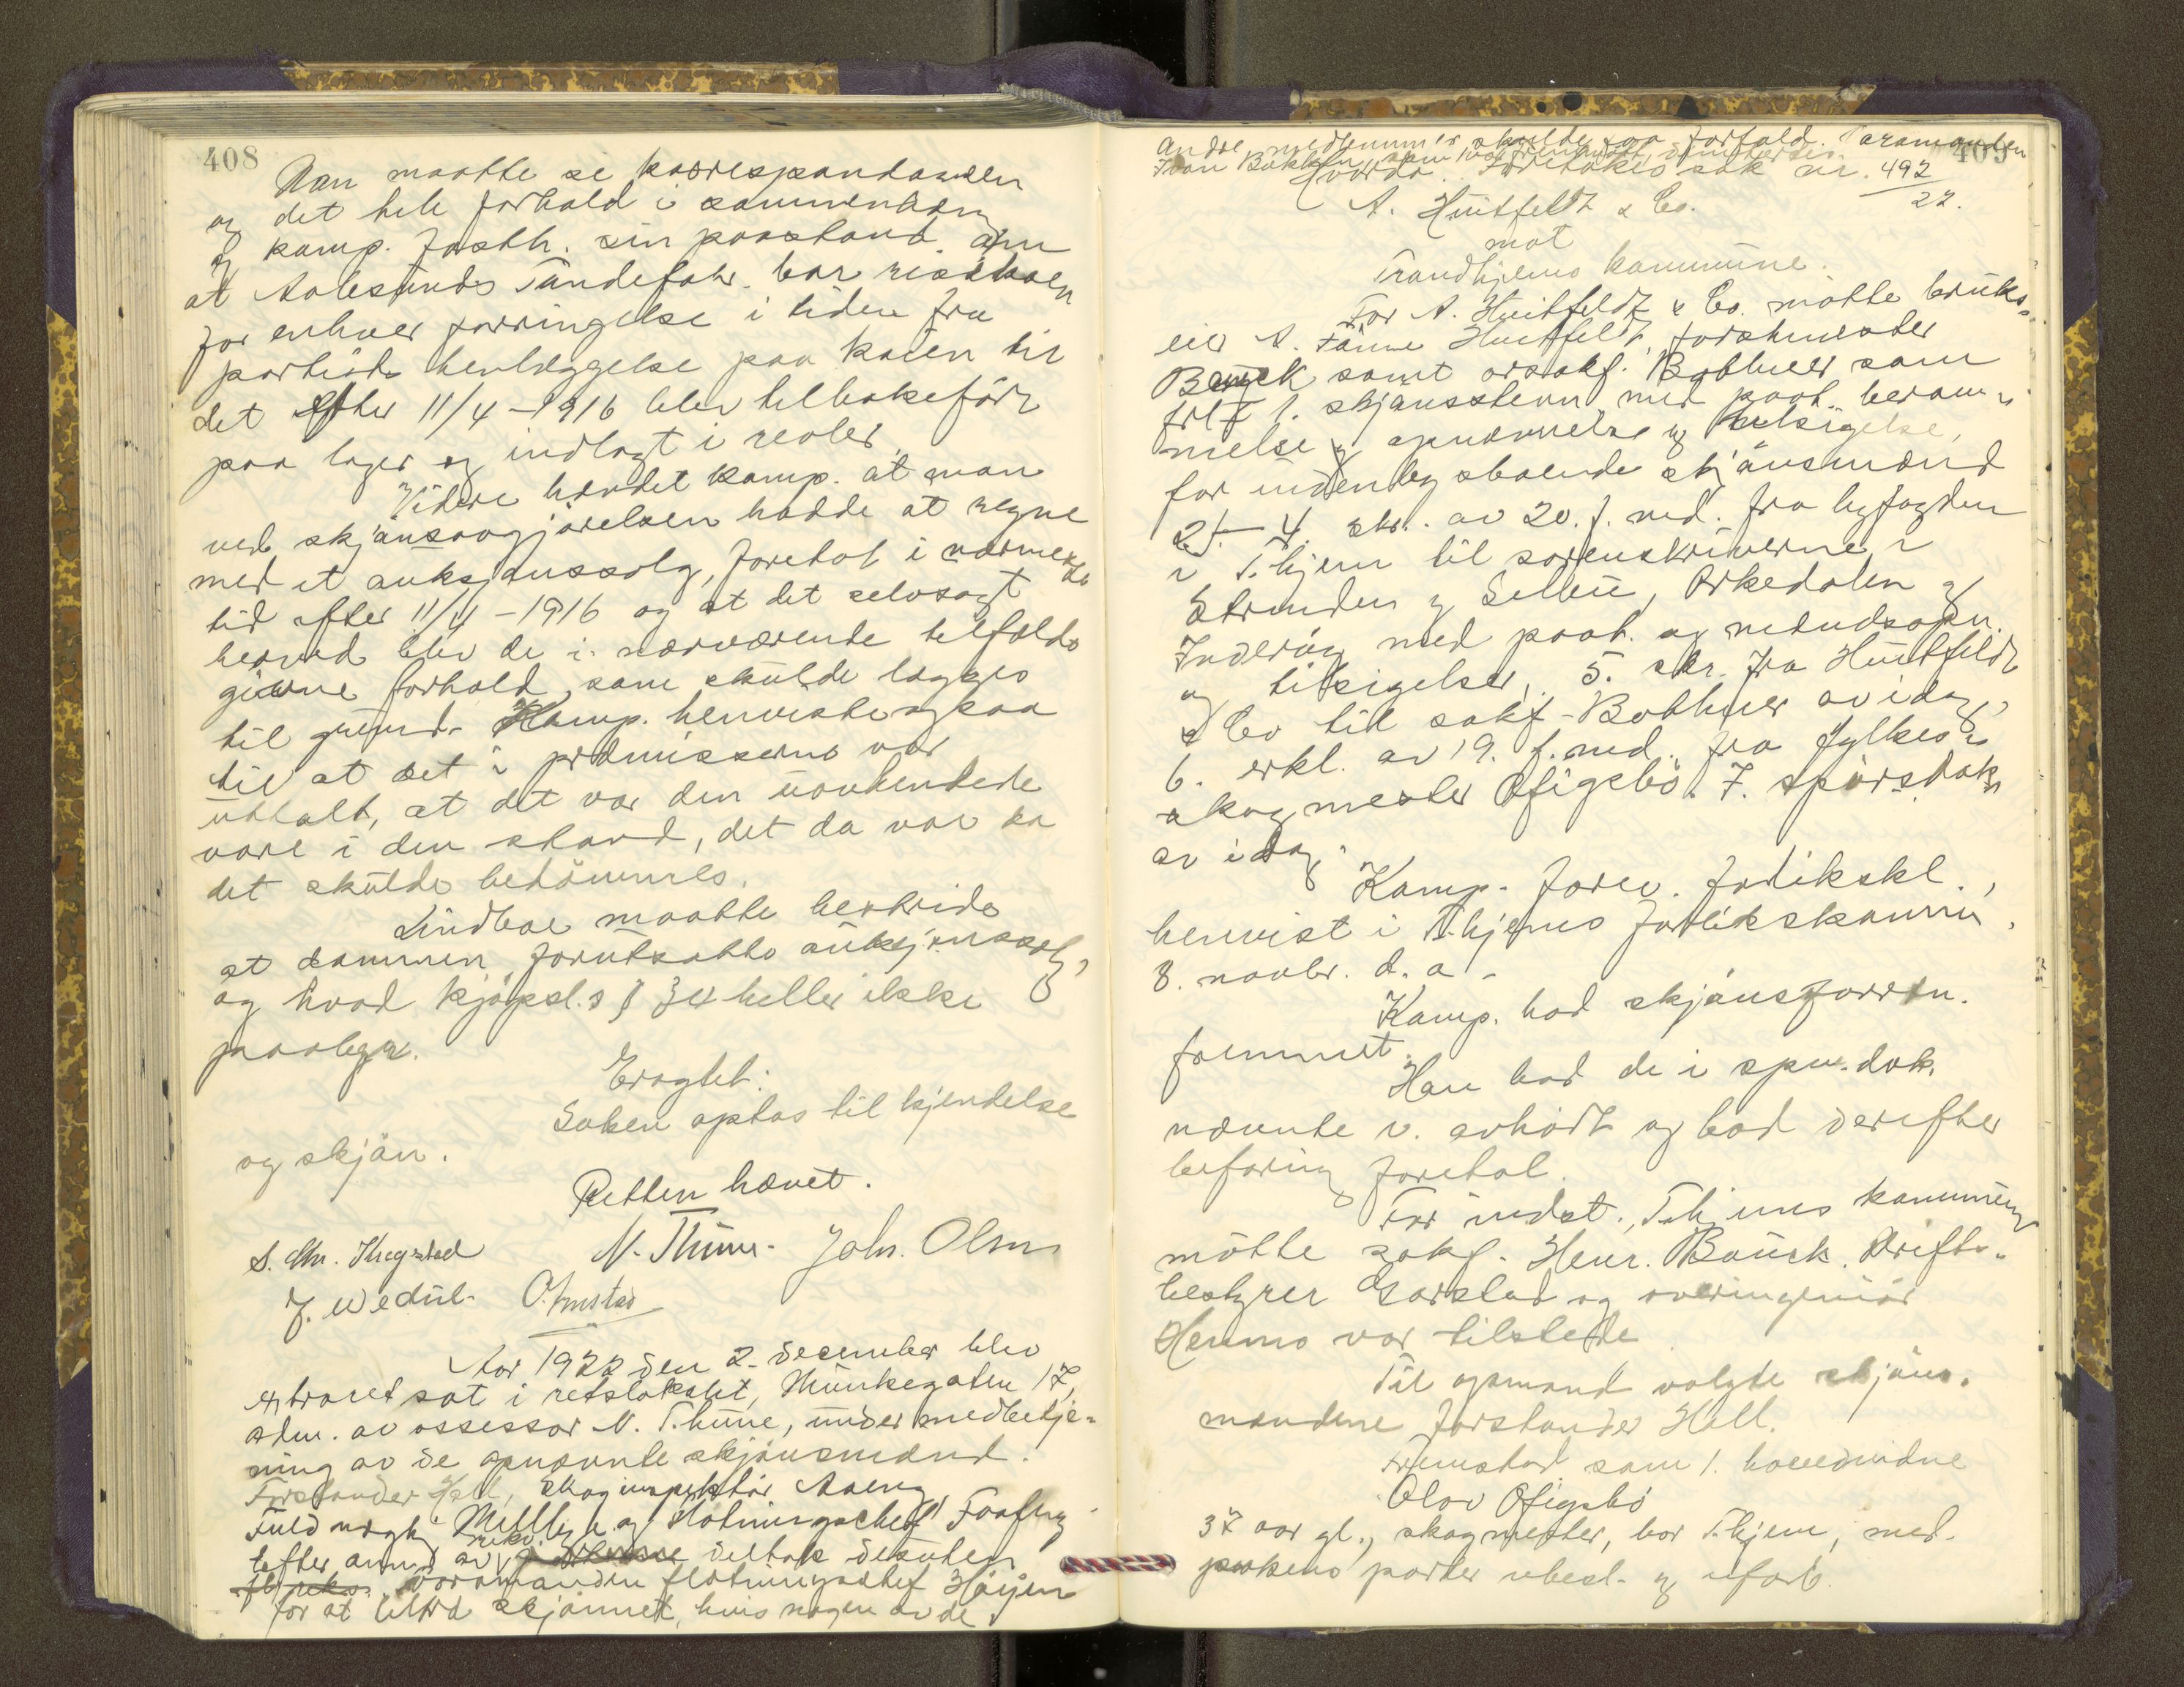 408
Man maatte se korrespondansen
og det hele forhold i sammenhæng
og komp. fasth. sin paastand om
at Aalesunds Tøndefabr. bar risikoen
for enhver forringelse i tiden fra
partiets henlæggelse paa kaien til
det efter 11/4-1916 blev tilbakeført
paa lager og indlagt i reoler
Videre hævdet komp. at man
ved skjønsavgjørelsen hadde at regne
med et auksjonssalg, foretat i nærmeste
tid efter 11/4-1916 og at det selvsagt
herved blev de i nærværende tilfælde
givne forhold, som skulde lægges
til grund. Komp. henviste ogsaa
til at det i præmisserne var
uttalt, at det var den uavhentede
vare i den stand, det da var
det skulde bedømmes.
Lindboe maatte bestride
at dommen forutsatte auksjonssalg,
og hvad kjøpsl.s § 34 heller ikke
paalegger.
Eragtet:
Saken optas til kjendelse
og skjøn.
Retten hævet.
N. Thune. Joh. Olsen
J. Wedul.
Aar 1922 den 2. december blev
extraret sat i retslokalet, Munkegaten 17,
adm. av assessor N. Thune, under medbetje-
ning av de opnævnte skjønsmænd:
Forstander Hall, Skoginspektør Aaeng,
Fuldmægtig og fløtningschef
efter anm. av deltok desuten
varamanden fløtningschef Høyem
for at tiltræ skjønnet, hvis nogen av de
409
andre medlemmer skulde faa forfald. Varamanden
Hvorda. Foretokes sak nr. 492/22.
A. Huitfeldt & Co.
mot
Trondhjems kommune.
For A. Huitfeldt & Co. møtte bruks-
eier A. Tønne Huitfeldt, forstmester
Bauck samt orsakf. Bøthner som
fril. 1. skjønsstevn. med paat. beram-
melse og opnævnelse og tilsigelse,
for indenbys boende skjønsmænd
2.-4. skr. av 20. f. md. fra byfogden
i T.hjem til sorenskriverne i
Strinden og Selbu, Orkedalen og
Inderøy med paat. og mændsopn.
og tilsigelser, 5. skr. fra Huitfeldt
& Co til sakf. Bøthner av idag,
6. erkl. av 19. f. md. fra fylkes-
skogmester Øfigsbø. 7. spørsdok
av idag.
Komp. forev. forlikskl.,
henvist i T.hjems forlikskommi.
8. novbr. d. a.
Komp. bad skjønsforretn.
fremmet.
Han bad de i spm. dok.
nævnte v. avhørt og bad derefter
befaring foretat.
For indst., T.hjems kommune
møtte sakf. Henr. Bauck. Drifts-
bestyrer Garstad og overingeniør
Hemmo var tilstede
Til opmand valgte skjøns-
mændene forstander Hall.
Fremstod som 1. hovedvidne
Olav Øfigsbø
37 aar gl., skogmester, bor T.hjem, med
sakens parter ubesl. og uforb.